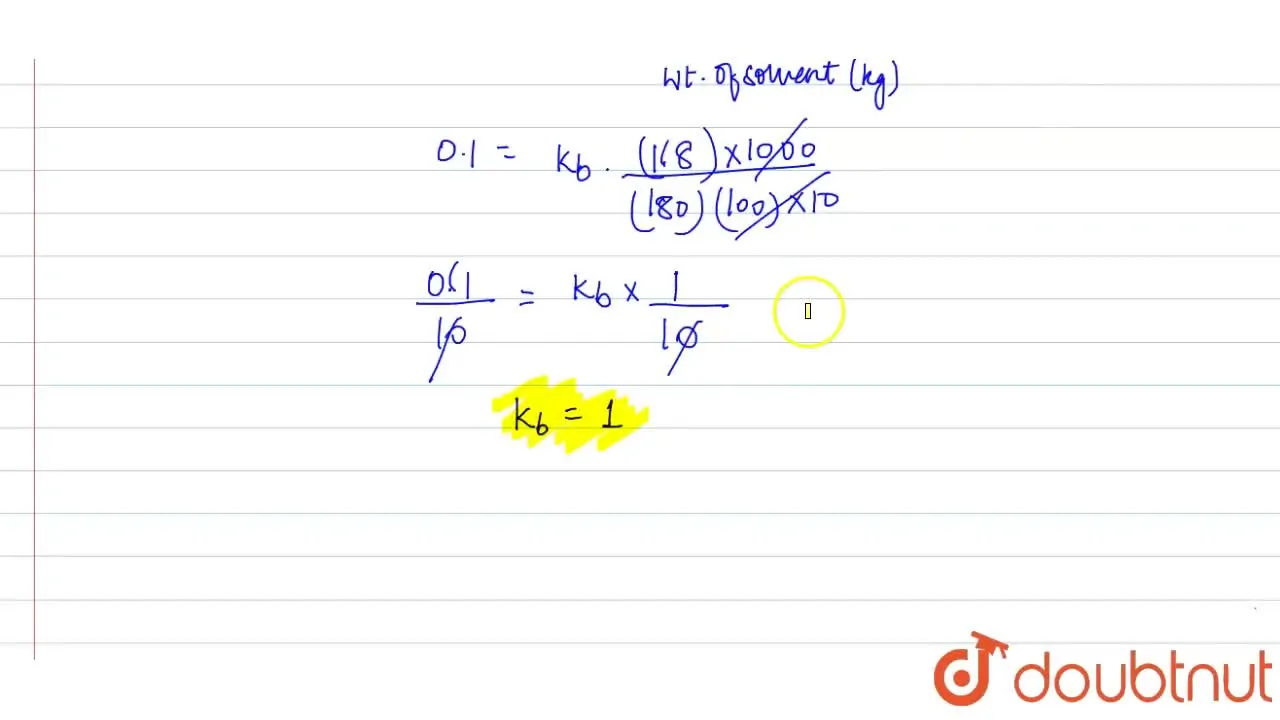 wt. of solvent (kg)
0.1 = Kb . (1.8) × 1000
(180) (100) × 10
0.1 = Kb × 1
10 10
Kb = 1
doubtnut